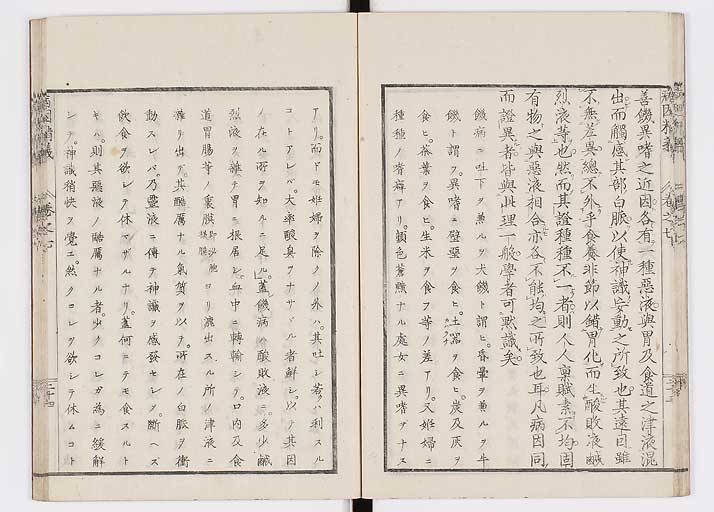 善饑異嗜之近因各有一種惡液與胃及食道之津液混
出而觸感其部白脈以使神識妄動之所致也其遠因雖
不無差異總不外乎食養非節以錯胃化而生酸敗液鹹
烈液等也然而其證種種不一者則人人稟賦素不均固
有物之與惡液相合亦各不能均之所致也耳凡病因同
而證異者皆與此理一般學者可默識矣
饑病ニ吐下ヲ兼ルヲ犬饑ト謂ヒ昏暈ヲ兼ルヲ牛
饑ト謂フ異嗜ニ壁堊ヲ食ヒ土器ヲ食ヒ炭及灰ヲ
食ヒ茶葉ヲ食ヒ生米ヲ食フ等ノ差アリ又姙婦ニ
種種ノ嗜癖アリ顏色蒼黤ナル處女ニ異嗜ヲナス
アリ而ドモ姙婦ヲ除クノ外ハ其吐シ若クハ利スル
コトアレバ大率酸臭ヲナサヾル者鮮シ以テ其因
ノ在ル所ヲ知ルニ足ル蓋饑病ハ酸敗液ニ多少鹹
烈液ヲ雜テ胃ニ根居シ血中ニ轉輸シテ口内及食
道胃腸等ノ裏膜ヨリ漉出スル所ノ津液ニ
雜リ出テ其酷厲ナル氣質ヲ以テ所在ノ白脈ヲ衝
動スレバ乃靈液ニ傳テ神識ヲ感發セシメ斷ヘズ
飮食ヲ欲シテ休マザルナリ蓋何ニテモ食スルト
キハ則其惡液ノ酷厲ナル者少クコレガ爲ニ緩解
シテ神識稍快ヲ覺ニ然クコレヲ欲シテ休ムコト